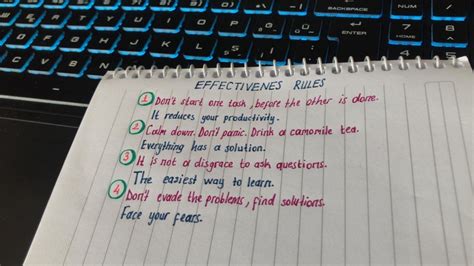 BACKSPACE
NUM
7
ENTER
4
END
1
EFFECTIVENES RULES
1 Don't start one task, before the other is done.
It reduces your productivity.
2 Calm down. Don't panic. Drink a camomile tea.
Everything has a solution.
3 It is not a disgrace to ask questions.
The easiest way to learn.
4 Don't evade the problems, find solutions.
Face your fears.